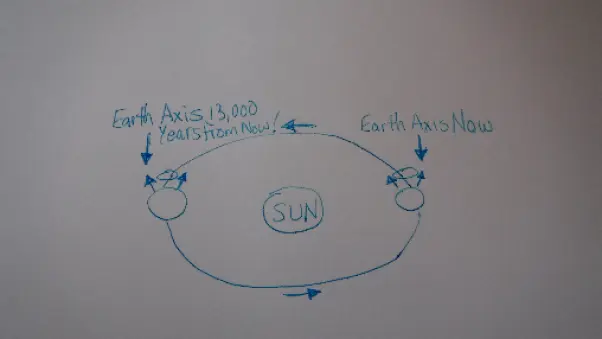 Earth Axis 13,000
Years from Now!
Earth Axis Now
SUN